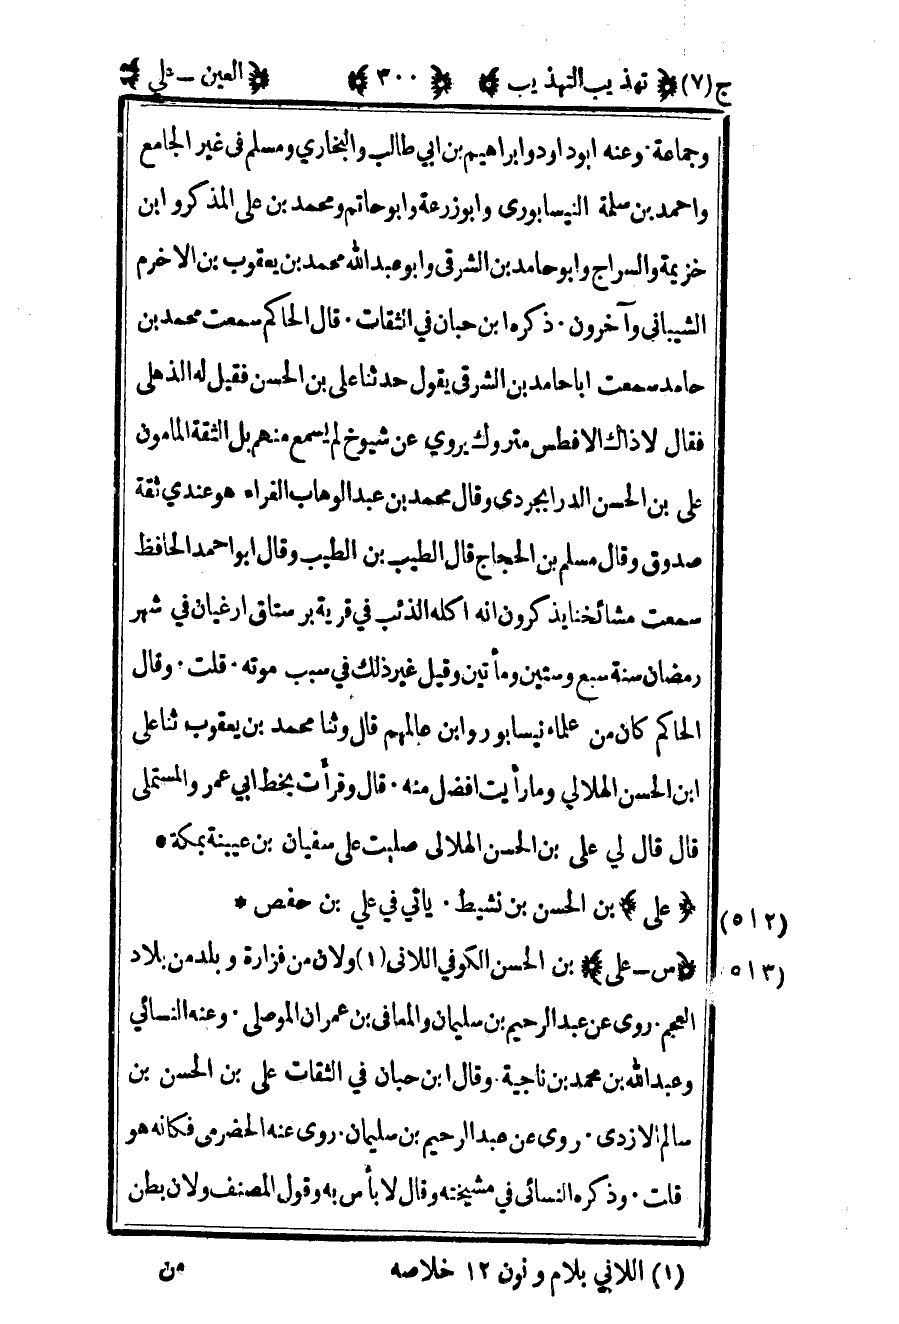 ج (٧) ﴿ تهذيب التهذيب ﴾ ﴿ ٣٠٠ ﴾ ﴿ العين – علي ﴾
وجماعة · وعنه ابو داود وابراهيم بن ابي طالب والبخاري ومسلم فى غير الجامع
واحمد بن سلمة النيسابورى وابو زرعة وابو حاتم ومحمد بن على المذكر وابن
خزيمة والسراج وابو حامد بن الشرقى وابو عبد الله محمد بن يعقوب بن الاخرم
الشيبانى وآخرون · ذكره ابن حبان في الثقات · قال الحاكم سمعت محمد بن
حامد سمعت ابا حامد بن الشرقى يقول حدثنا على بن الحسن فقيل له الذهلى
فقال لا ذاك الافطس متروك يروي عن شيوخ لم يسمع منهم بل الثقة المامون
على بن الحسن الدرابجردى وقال محمد بن عبد الوهاب الفراء هو عندي ثقة
صدوق وقال مسلم بن الحجاج قال الطيب بن الطيب وقال ابو احمد الحافظ
سمعت مشائخنا يذكرون انه اكله الذئب في قرية برستاق ارغيان في شهر
رمضان سنة سبع وستين ومأتين وقيل غير ذلك في سبب موته · قلت · وقال
الحاكم كان من علماء نيسابور وابن عالمهم قال وثنا محمد بن يعقوب ثنا على
ابن الحسن الهلالي وما رأيت افضل منه · قال وقرأت بخط ابي عمرو المستملى
قال قال لي على بن الحسن الهلالى صليت على سفيان بن عيينة بمكة *
﴿ على ﴾ بن الحسن بن نشيط · ياتي في علي بن حفص * (٥١٢)
﴿ س – على ﴾ بن الحسن الكوفي اللانى (١) ولان من فزارة وبلد من بلاد (٥١٣)
العجم · روى عن عبد الرحيم بن سليمان والمعافى بن عمران الموصلى · وعنه النسائي
وعبد الله بن محمد بن ناجية · وقال ابن حبان في الثقات على بن الحسن بن
سالم الازدى · روى عن عبد الرحيم بن سليمان · روى عنه الحضرمى فكانه هو
قلت · وذكره النسائى في مشيخته وقال لا بأس به وقول المصنف ولان بطن
(١) اللاني بلام ونون ١٢ خلاصه من